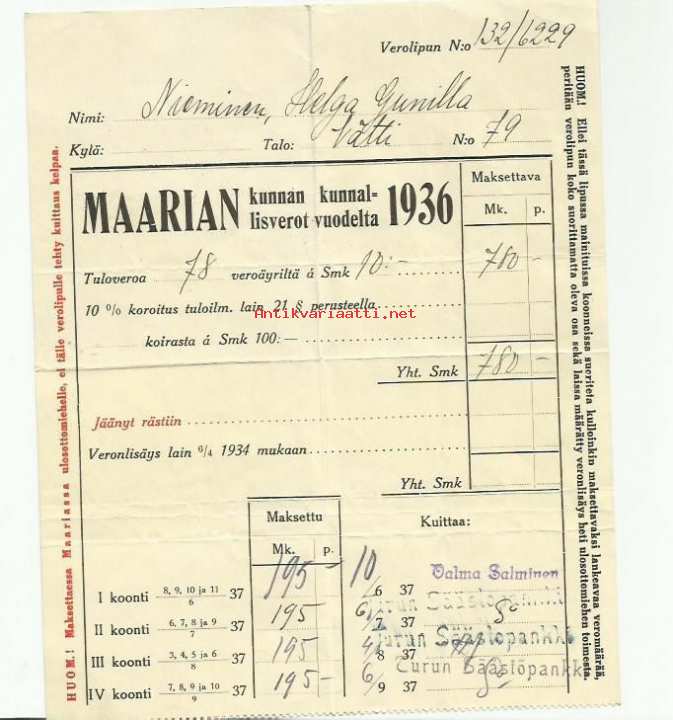 Verolipun N:o 132/6229
Nimi: Nieminen, Helga Gunilla
Kylä: Talo: Vätti N:o 79
MAARIAN kunnan kunnal-
lisverot vuodelta 1936
Maksettava
Mk. p.
Tuloveroa 78 veroäyriltä á Smk 10:- 780 -
10 % koroitus tuloilm. lain 21 § perusteella
Antikvariaatti.net
koirasta á Smk 100:—
Yht. Smk 780 -
Jäänyt rästiin
Veronlisäys lain 6/4 1934 mukaan
Yht. Smk
Maksettu
Mk. p.
Kuittaa:
I koonti 8, 9, 10 ja 11/6 37 195 - 10/6 37 Valma Salminen
II koonti 6, 7, 8 ja 9/7 37 195 6/7 37 Turun Säästöpankki
III koonti 3, 4, 5 ja 6/8 37 195 4/8 37 Turun Säästöpankki
IV koonti 7, 8, 9 ja 10/9 37 195 - 6/9 37 Turun Säästöpankki
HUOM.! Maksettaessa Maariassa ulosottomiehelle, ei tälle verolipulle tehty kuittaus kelpaa.
HUOM.! Ellei tässä lipussa mainituissa koonneissa suoriteta kulloinkin maksettavaksi lankeavaa veromäärää,
peritään verolipun koko suorittamatta oleva osa sekä laissa määrätty veronlisäys heti ulosottomiehen toimesta.